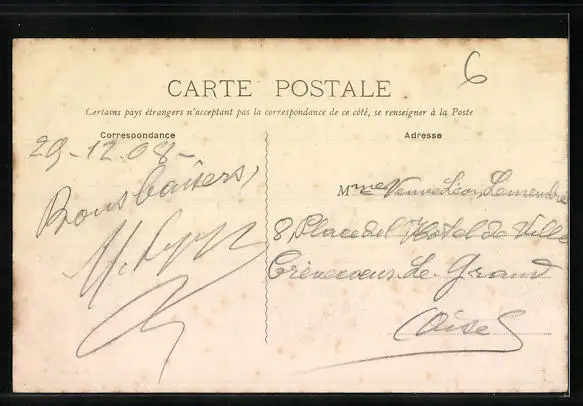 6
CARTE POSTALE
Certains pays étrangers n'acceptant pas la correspondance de ce côté, se renseigner à la Poste
Correspondance
Adresse
29-12.08-
Bons baisers,
Mme Veuve Léon
8, Place de l'Hotel de Ville
Crèvecoeur Le Grand
(Oise)